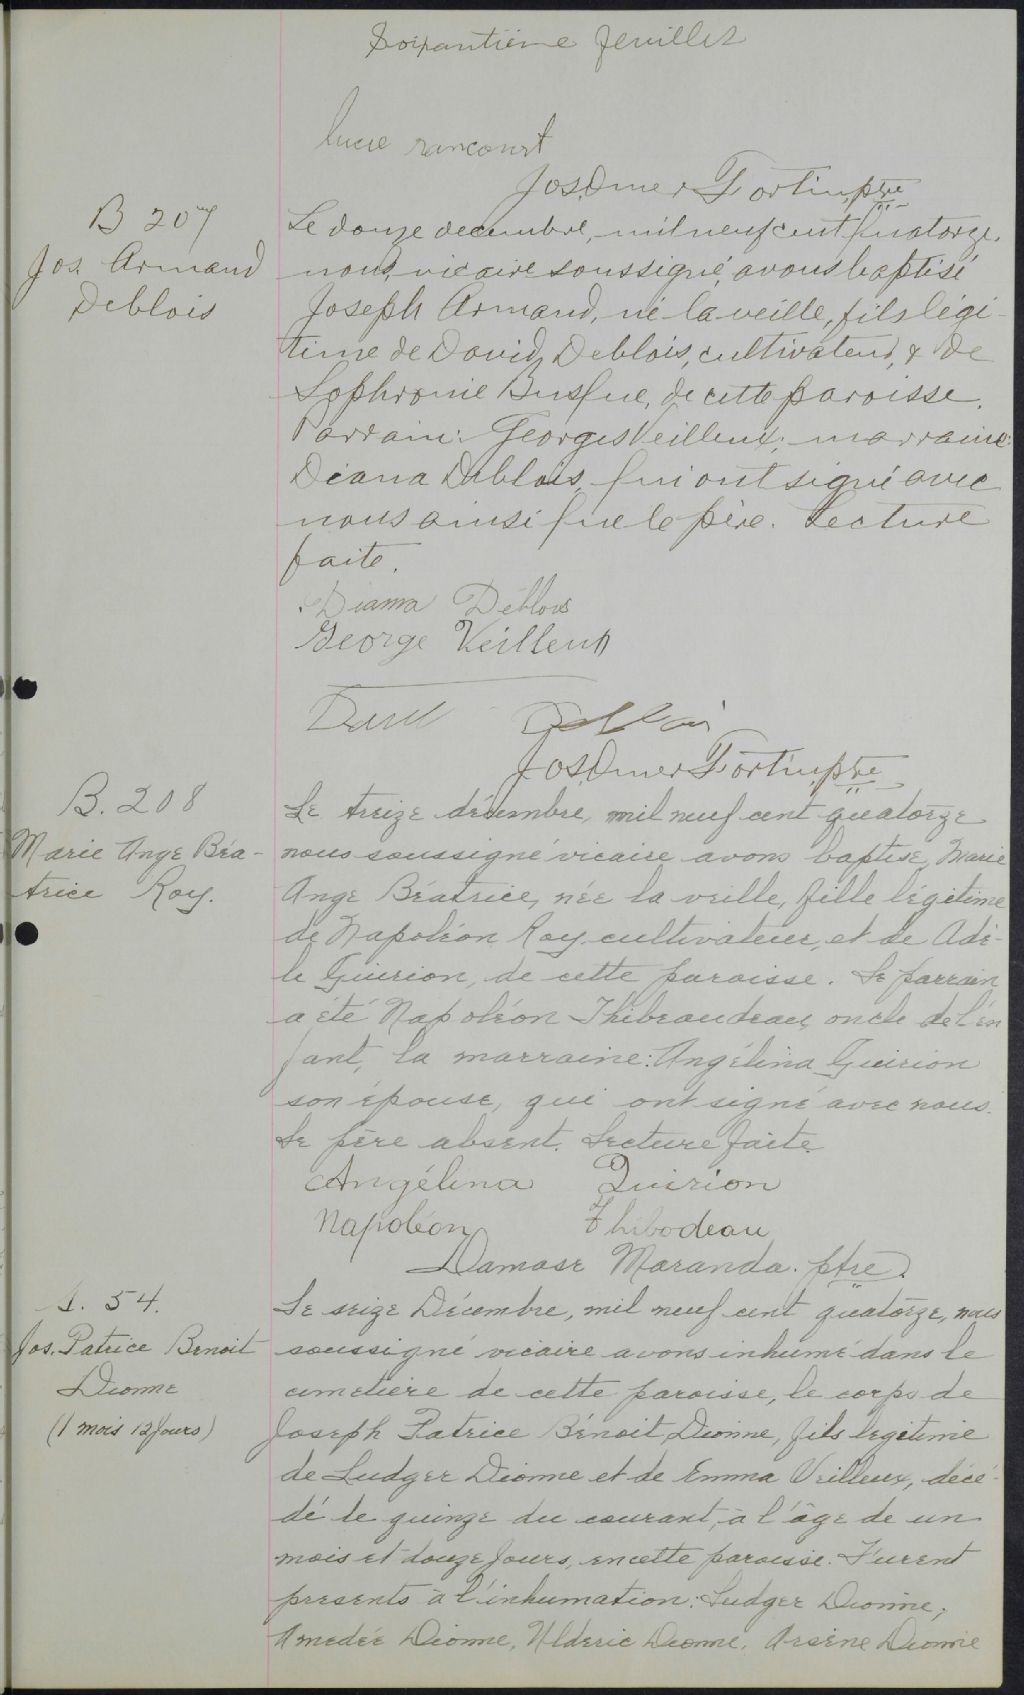 Soixantième feuillet
Lucie rancourt
Jos. Omer Fortin, ptre
B 207
Jos. Armand
Deblois
Le douze decembre, mil neuf cent quatorze,
nous, vicaire soussigné, avons baptisé
Joseph Armand, né la veille, fils légi-
time de David Deblois, cultivateur, & de
Sophronie Busque, de cette paroisse.
Parrain: Georges Veilleux; marraine:
Diana Deblois, qui ont signé avec
nous ainsi que le père. Lecture
faite.
Diama Déblois
George Veilleux
Jos. Omer Fortin, ptre
B. 208
Marie Ange Béa-
trice Roy.
Le treize décembre, mil neuf cent quatorze
nous soussigné vicaire avons baptisé, Marie
Ange Béatrice, née la veille, fille légitime
de Napoléon Roy cultivateur, et de Adè-
le Quirion, de cette paroisse. Le parrain
a été Napoléon Thibeaudeau, oncle de l'en
fant, la marraine: Angélina Quirion
son épouse, qui ont signé avec nous.
Le père absent. Lecture faite.
Angélina Quirion
Napoléon Thibodeau
Damase Maranda. ptre.
S. 54.
Jos. Patrice Benoit
Dionne
(1 mois 12 jours)
Le seize Décembre, mil neuf cent quatorze, nous
soussigné vicaire avons inhumé dans le
cimetière de cette paroisse, le corps de
Joseph Patrice Bénoit Dionne, fils légitime
de Ludger Dionne et de Emma Veilleux, décé-
dé le quinze du courant, à l'âge de un
mois et douze jours, en cette paroisse. Furent
presents à l'inhumation: Ludger Dionne,
Amedée Dionne, Ulderic Dionne, Arsène Dionne